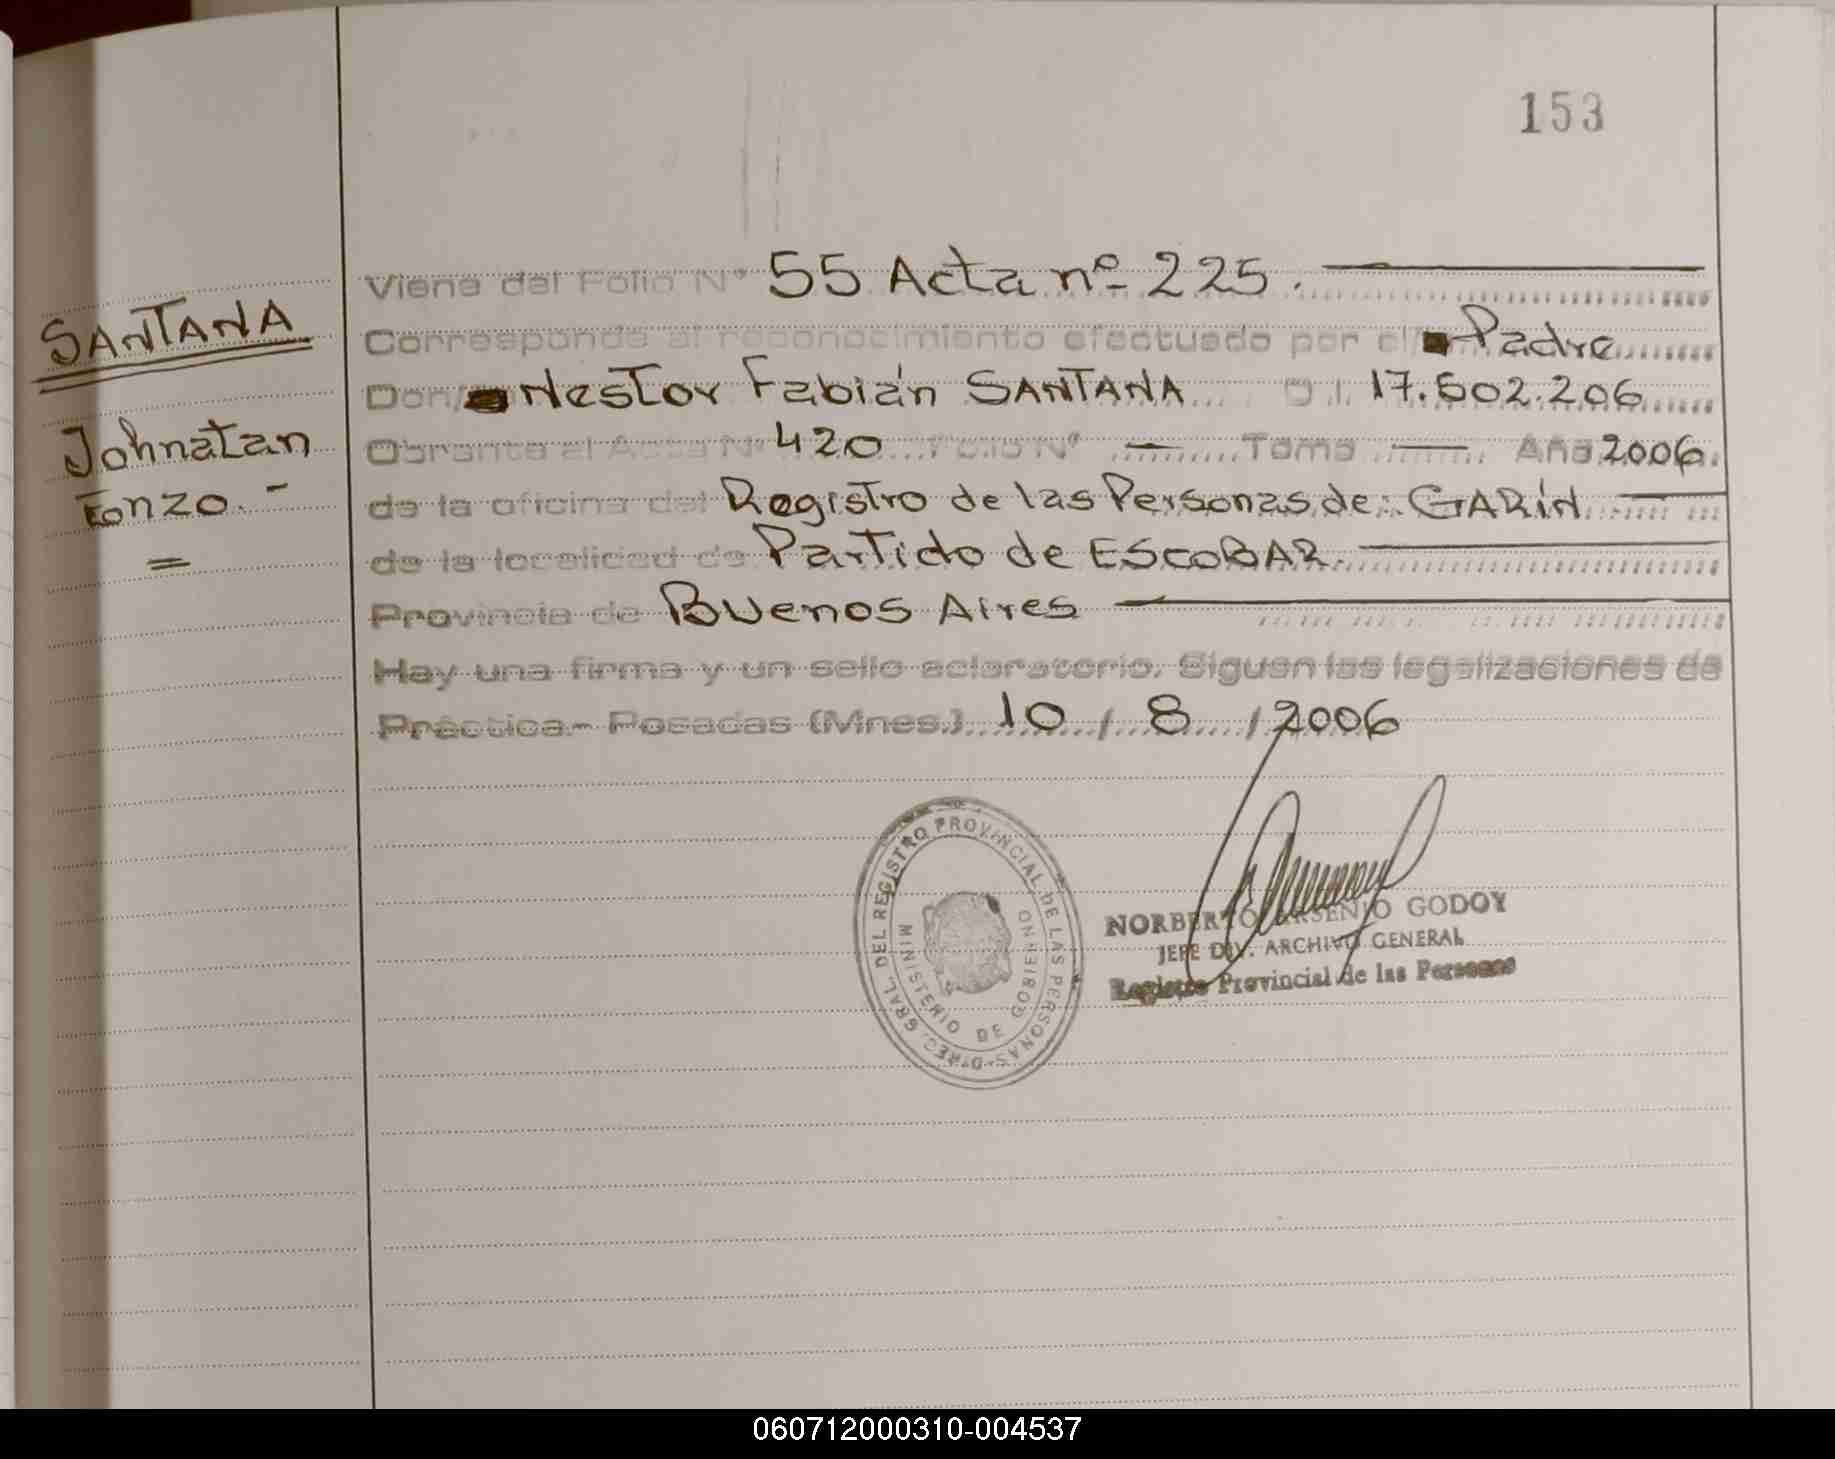 153
SANTANA
Johnatan
Enzo.-
=
Viene del Folio Nº 55 Acta nº 225.
Corresponde al reconocimiento efectuado por el/ Padre
Don/ Nestor Fabián SANTANA D.I. 17.502.206
Obrante al Acta Nº 420 Folio Nº — Tomo — Año 2006
de la oficina del Registro de las Personas de: GARÍN
de la localidad de Partido de ESCOBAR.
Provincia de Buenos Aires
Hay una firma y un sello aclaratorio. Siguen las legalizaciones de
Práctica.- Posadas (Mnes.) 10 / 8 / 2006
DIREC. GRAL. DEL REGISTRO PROVINCIAL DE LAS PERSONAS
MINISTERIO DE GOBIERNO
NORBERTO ARSENIO GODOY
JEFE DIV. ARCHIVO GENERAL
Registro Provincial de las Personas
060712000310-004537